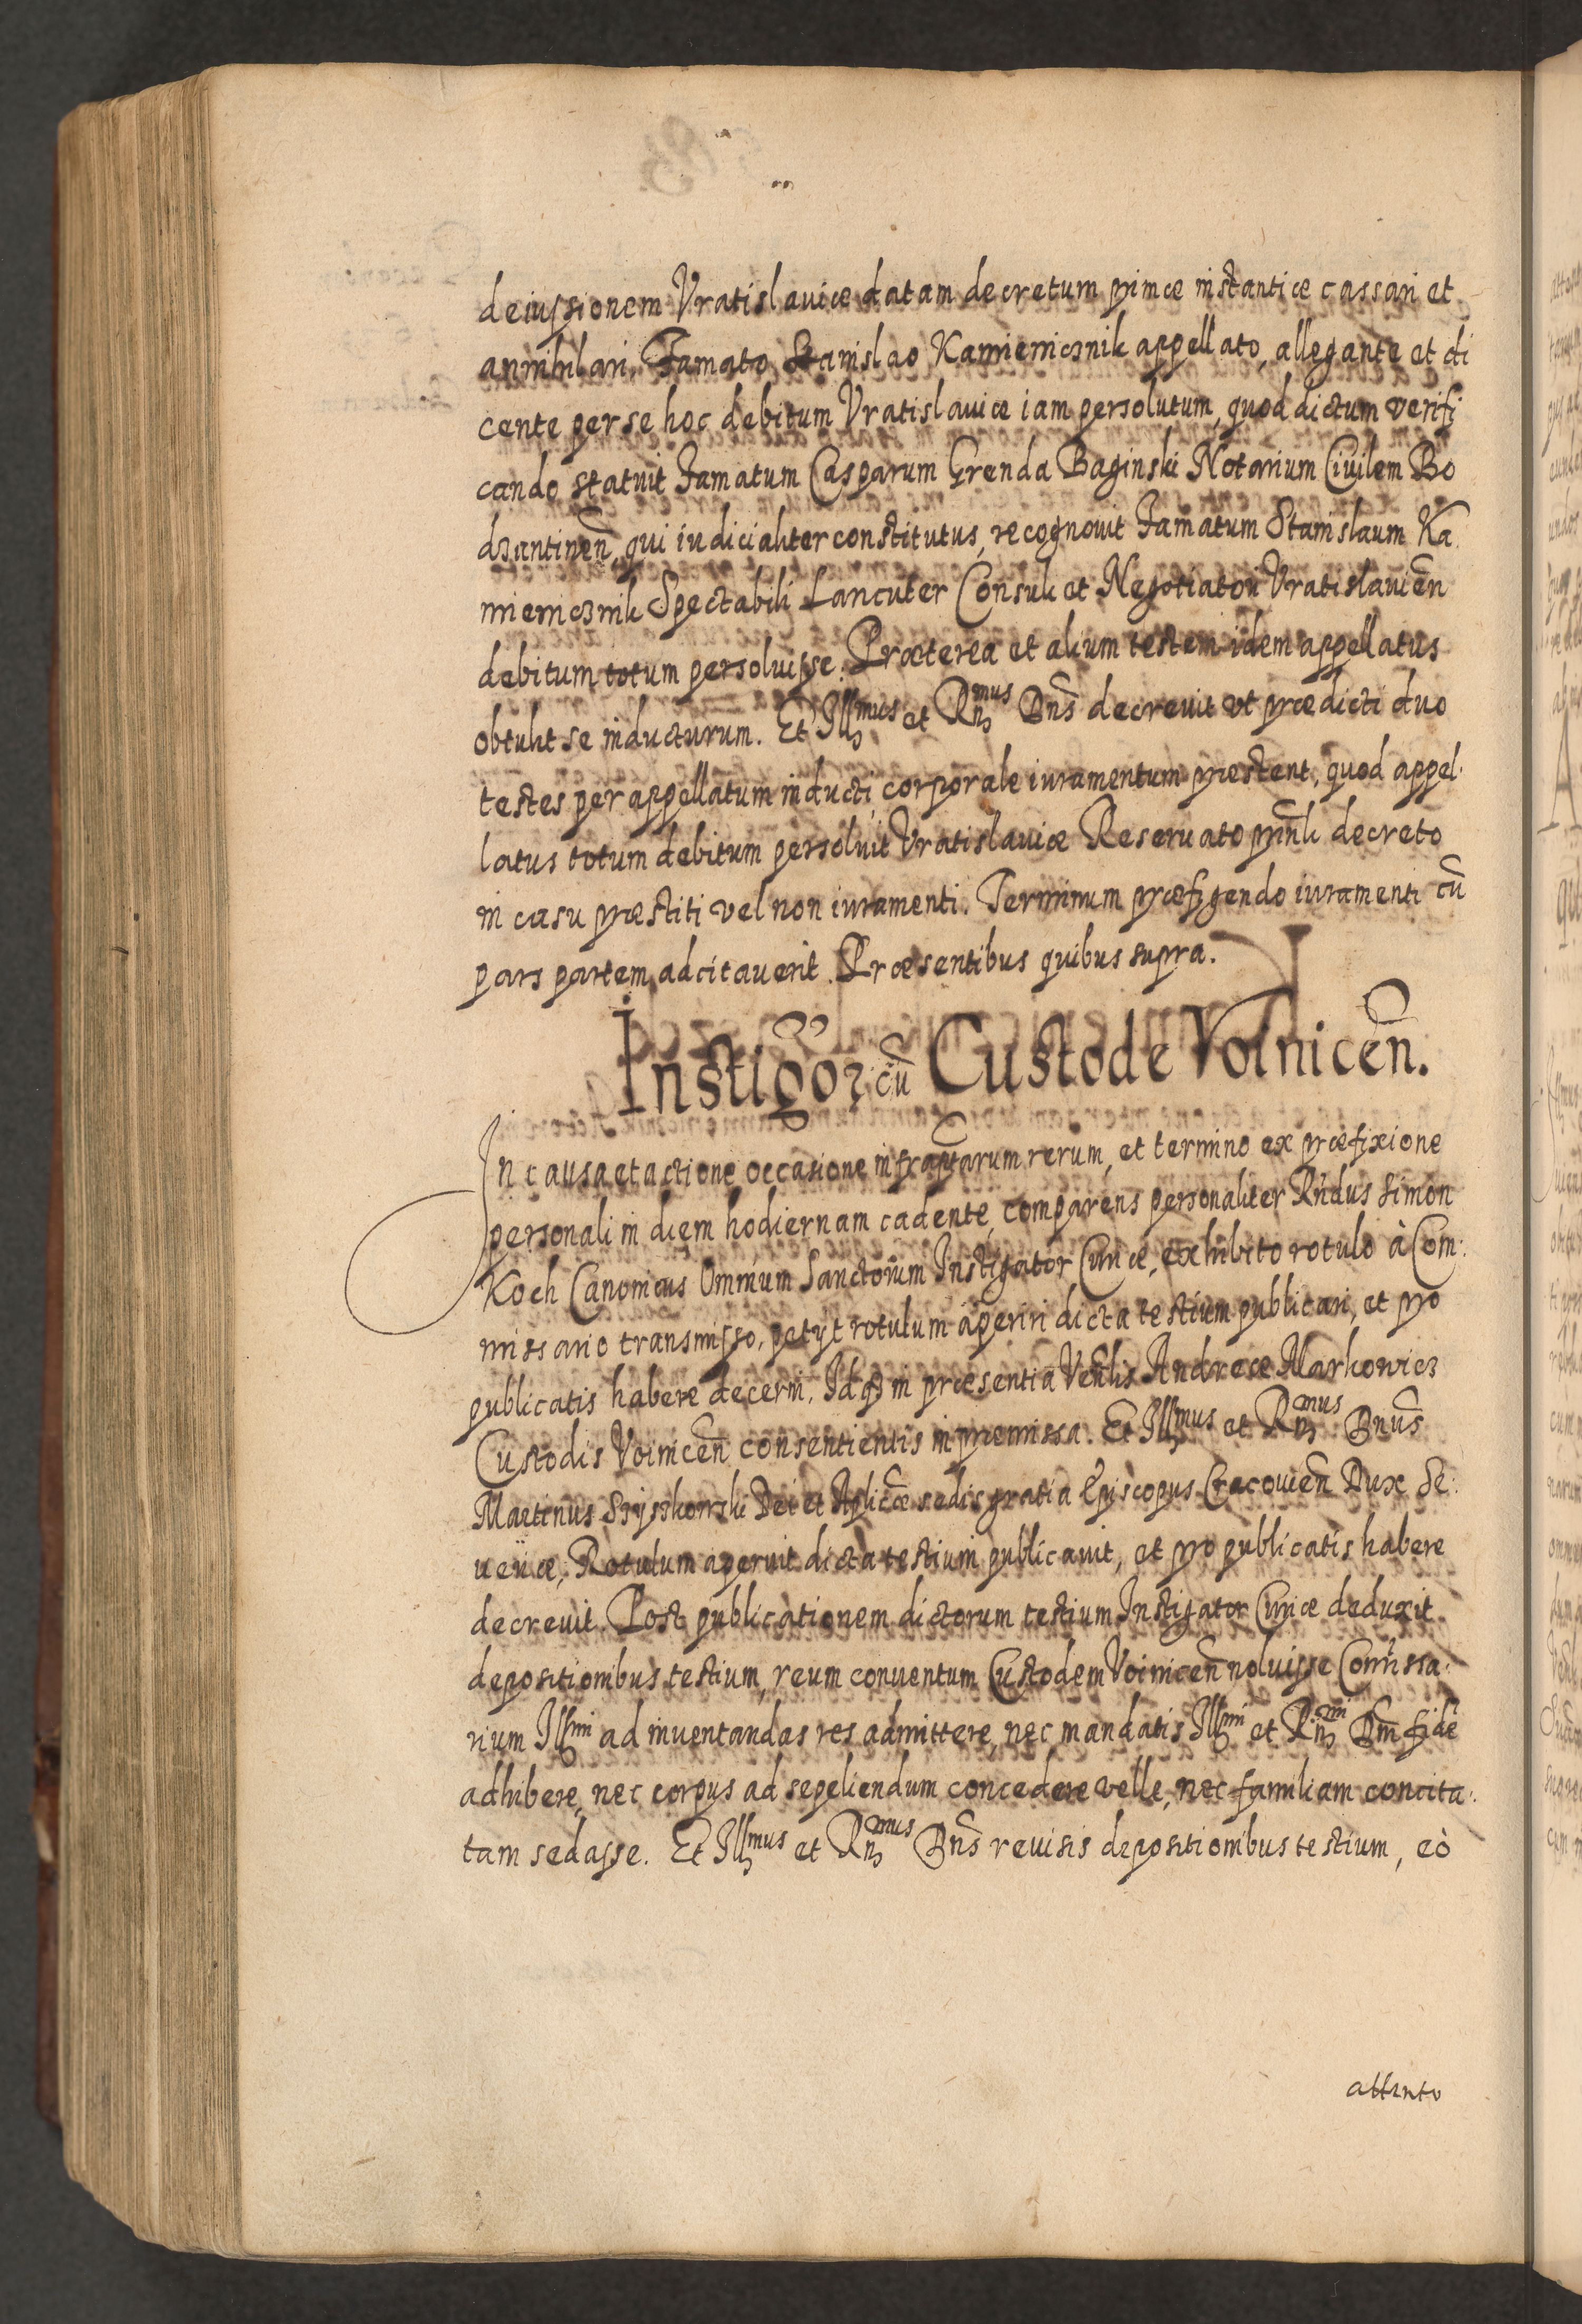 deiussionem Vratislauiæ datam decretum primæ instantiæ cassari et
annihilari, Famato Stanislao Kamienicznik appellato, allegante et di
cente per se hoc debitum Vratislauiæ iam persolutum, quod dictum verifi
cando statuit Famatum Casparum Grenda Baginski Notarium Ciuilem Bo
dzantinen̄, qui iudicialiter constitutus, recognouit Famatum Stanislaum Ka
mienicznik Spectabili Lancuter Consuli et Negotiatori Vratislauien̄
debitum totum persoluisse. Præterea et alium testem idem appellatus
obtulit se inducturum. Et Illmus et Rmus Dns̄ decreuit vt prædicti duo
testes per appellatum inducti corporale iuramentum præstent, quod appel-
latus totum debitum persoluit Vratislauiæ Reseruato prn̄li decreto
in casu præstiti vel non iuramenti. Terminum præfigendo iuramenti cū
pars partem adcitauerit. Præsentibus quibus supra.
Instigor cū Custode Voinicen̄.
In causa et actione occasione infrapt̄arum rerum, et termino ex præfixione
personali in diem hodiernam cadente, comparens personaliter Rn̄dus Simon
Koch Canonicus Omnium Sanctorum Instigator Curiæ, exhibito rotulo à Com:
missario transmisso, petijt rotulum aperiri dicta testium publicari, et pro
publicatis habere decerni, Idqꝫ in præsentia Ven̄lis Andreæ Markowicz
Custodis Voinicen̄ consentientis in præmissa. Et Illmus et Rmus Dnūs
Martinus Szyszkowski Dei et Aplicæ sedis gratia Episcopus Cracouien̄ Dux Se:
ueriæ, Rotulum aperuit dicta testium publicauit, et pro publicatis habere
decreuit. Post publicationem dictorum testium Instigator Curiæ deduxit
depositionibus testium, reum conuentum Custodem Voinicen̄ noluisse Com̄issa:
rium Illmi ad inuentandas res admittere, nec mandatis Illmi et Rmi Dni fidē
adhibere, nec corpus ad sepeliendum concedere velle, nec familiam concita:
tam sedasse. Et Illmus et Rmus Dns̄ reuisis depositionibus testium, eò
attento